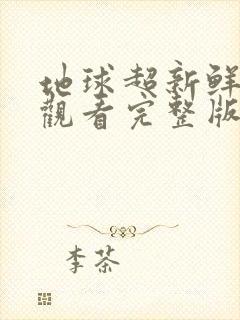 地球超新鮮
觀看完整版
李茶